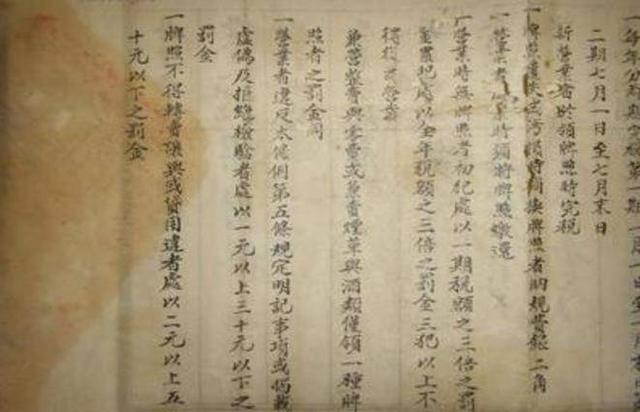 一每年分兩期完稅第一期一月一日至
二期七月一日至七月末日
新營業者於領牌照時完稅
一牌照遺失或污損時須換牌照者納規費銀二角
一營業者業時須將牌照繳還
一營業時無牌照者初犯處以一期稅額之三倍之罰
金累犯處以全年稅額之三倍之罰金三犯以上不
得復其營業
兼營整賣與零賣或兼賣煙草與酒類僅領一種牌
照者之罰金同
一營業者違反本條例第五條規定明記事項或揭載
虛偽及拒絕檢驗者處以一元以上三十元以下之
罰金
一牌照不得轉賣讓與或貸用違者處以二元以上五
十元以下之罰金